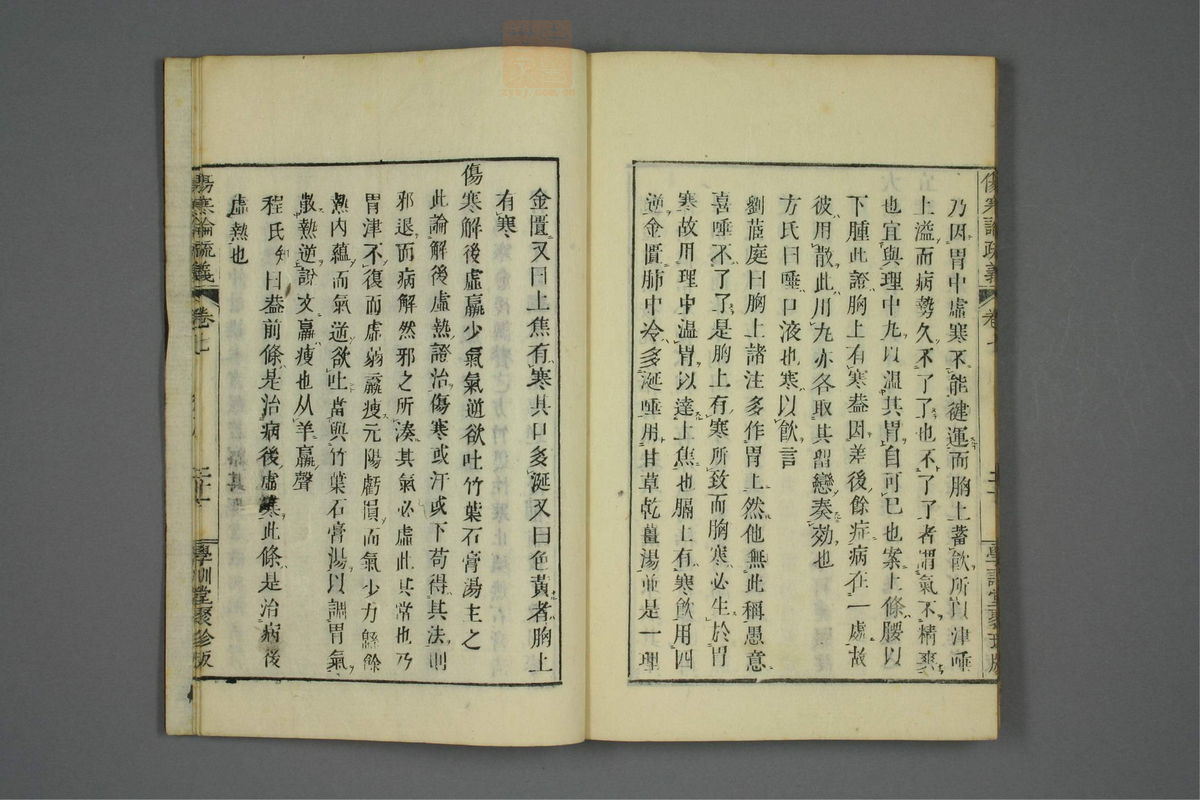 乃因胃中虛寒不能健運而胸上蓄飮所以津唾
上溢而病勢久不了了也不了了者謂氣不精爽
也宜與理中丸以溫其胃自可已也案上條腰以
下腫此證胸上有寒蓋因差後餘症病在一處故
彼用散此用丸亦各取其留戀奏効也
方氏曰唾口液也寒以飮言
劉茝庭曰胸上諸注多作胃上然他無此稱愚意
喜唾不了了是胸上有寒所致而胸寒必生於胃
寒故用理中溫胃以達上焦也膈上有寒飮用四
逆金匱肺中冷多涎唾用甘草乾薑湯並是一理
傷寒論疏義
卷七
學訓堂聚珍版
金匱又曰上焦有寒其口多涎又曰色黃者胸上
有寒
傷寒解後虛羸少氣氣逆欲吐竹葉石膏湯主之
此論解後虛熱證治傷寒或汗或下苟得其法則
邪退而病解然邪之所湊其氣必虛此其常也乃
胃津不復而虛弱羸瘦元陽虧損而氣少力緜餘
熱內蘊而氣逆欲吐當與竹葉石膏湯以調胃氣
散熱逆說文羸瘦也从羊𣎆聲
程氏知曰蓋前條是治病後虛寒此條是治病後
虛熱也
傷寒論疏義
卷七
學訓堂聚珍版